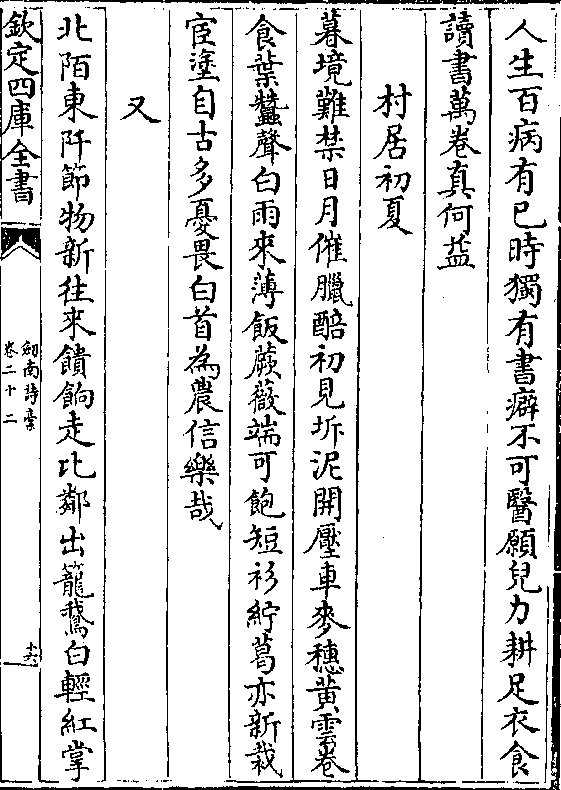 人生百病有已時獨有書癖不可醫願兒力耕足衣食
讀書萬卷真何益
村居初夏
暮境難禁日月催臘醅初見坼泥開壓車麥穗黃雲卷
食葉蠶聲白雨來薄飯蕨薇端可飽短衫紵葛亦新裁
宦塗自古多憂畏白首為農信樂哉
又
北陌東阡節物新往來饋餉走比鄰出籠鵝白輕紅掌
欽定四庫全書
劒南詩稾
卷二十二
十六